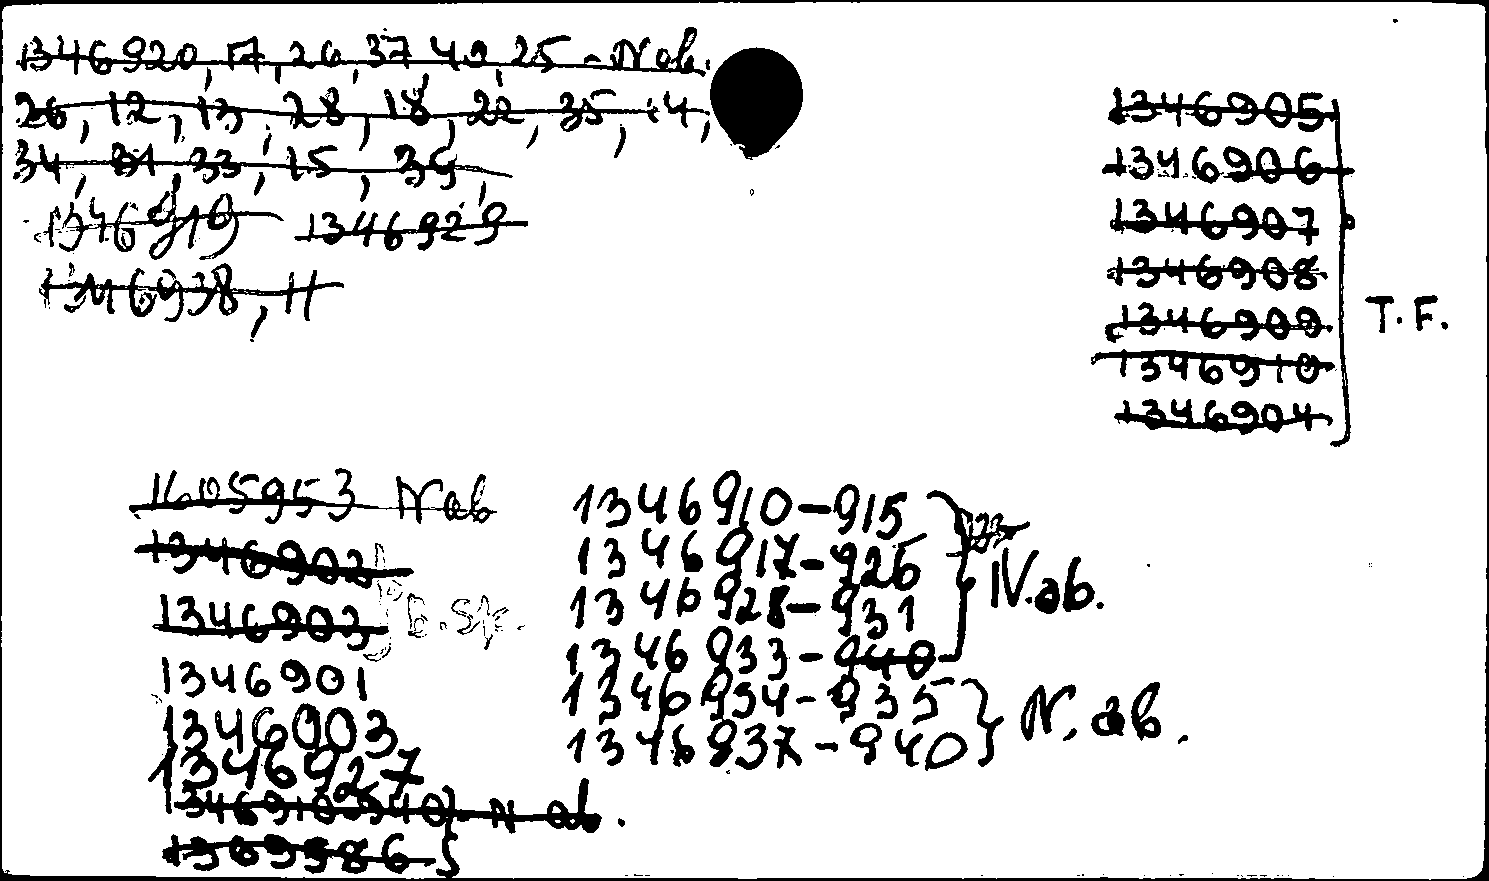 1346920, 17, 26, 37, 40, 25 - Nab.
26, 12, 13, 28, 18, 22, 35, 14,
34, 31, 33, 15, 39,
1346919 1346929
1346938, 11
1346905
1346906
1346907
1346908
1346909
1346910
1346904
T.F.
1605953 Nab
1346902
1346903
1346901
1346003
1346927
1346910-940 - N ab.
1346910-915
1346917-926
1346928-931
1346933-940
N.ab.
1346934-935
1346937-940
N. ab.